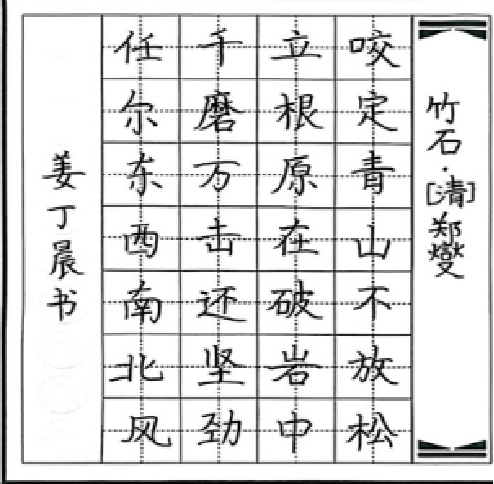 竹石·[清]郑燮
咬定青山不放松
立根原在破岩中
千磨万击还坚劲
任尔东西南北风
姜丁晨书